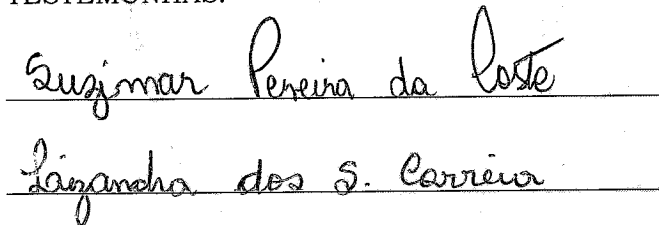 TESTEMUNHAS:
Suzimar Pereira da Costa
Láizandra dos S. Correia